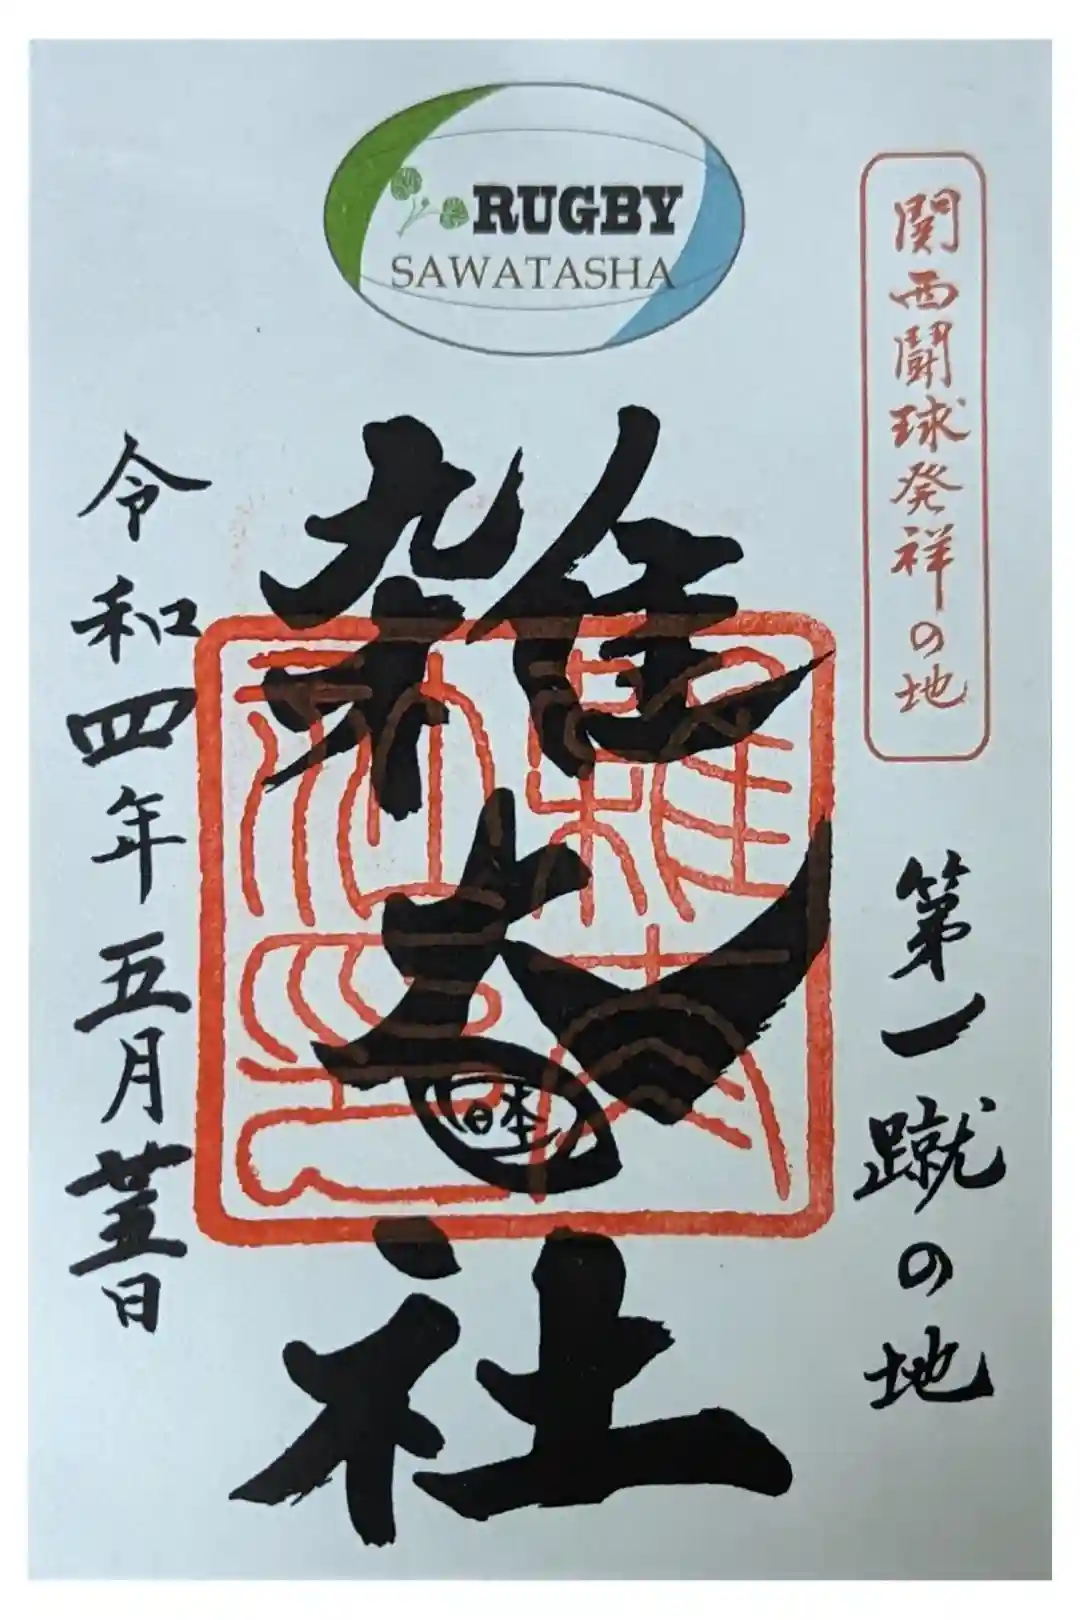 RUGBY
SAWATASHA
関西闘球発祥の地
第一蹴の地
雑太社
日本
令和四年五月廿五日